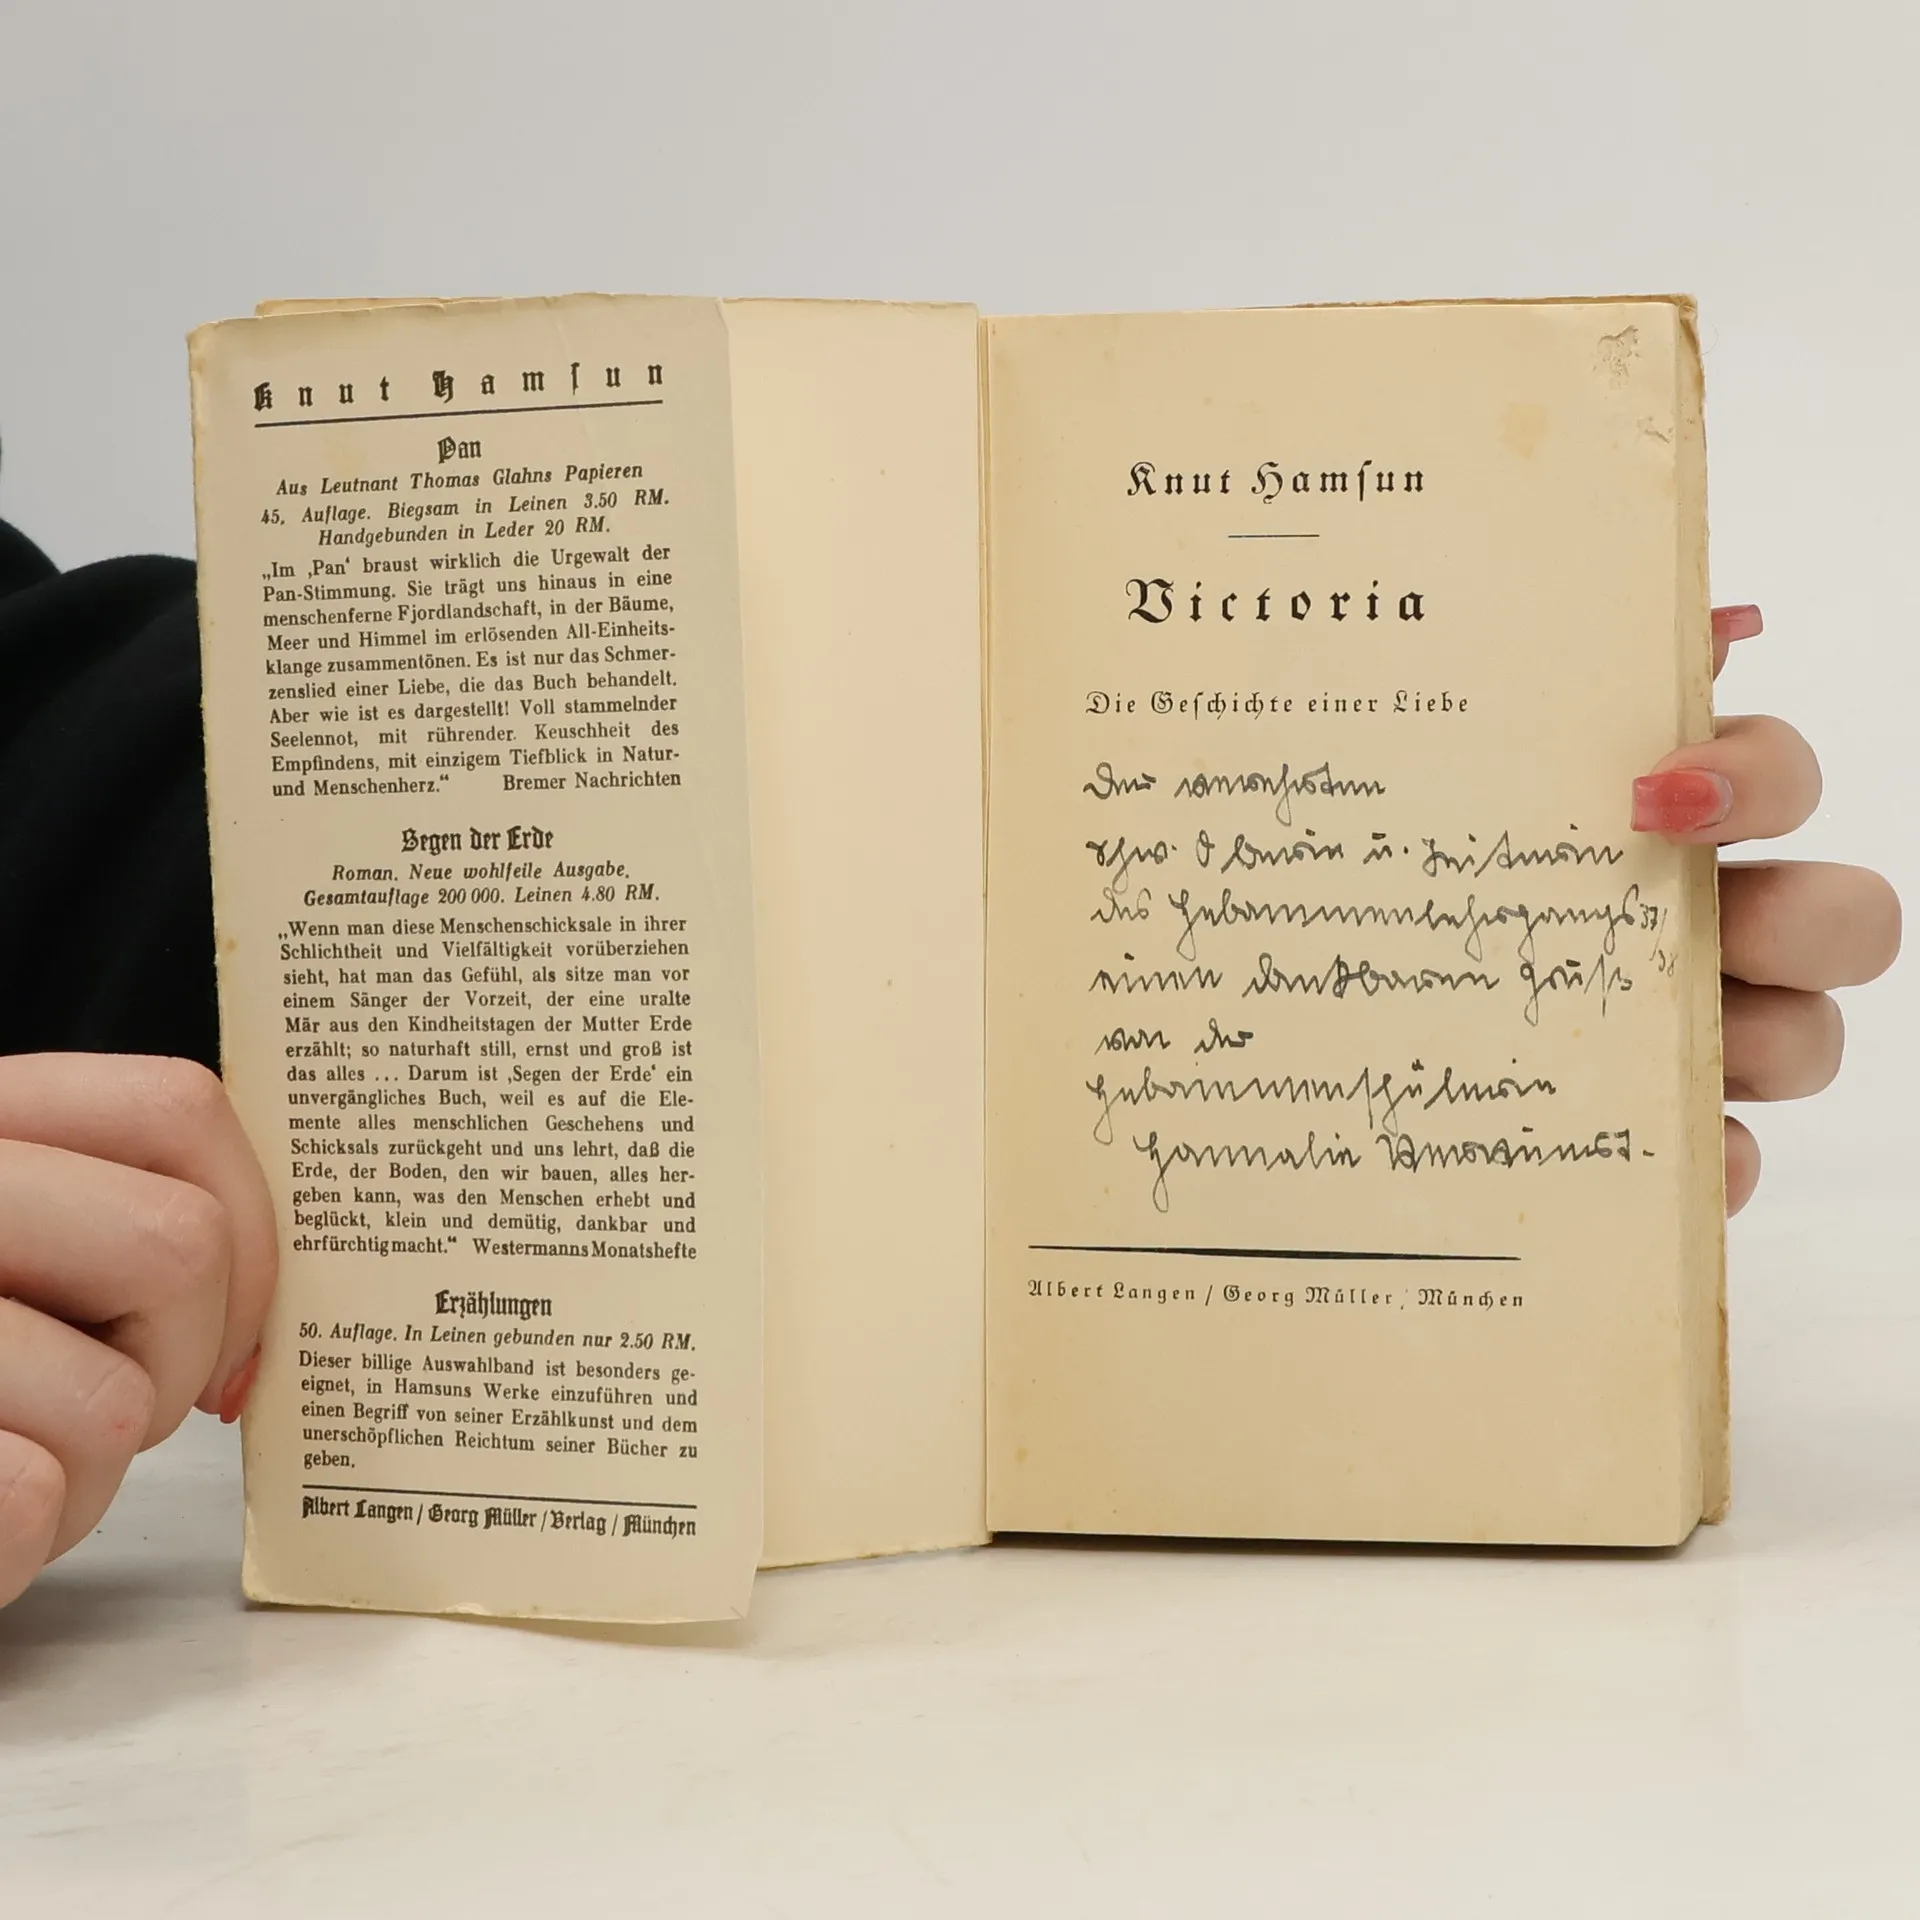 Knut Hamsun
Pan
Aus Leutnant Thomas Glahns Papieren
45. Auflage. Biegsam in Leinen 3.50 RM.
Handgebunden in Leder 20 RM.
„Im ‚Pan‘ braust wirklich die Urgewalt der
Pan-Stimmung. Sie trägt uns hinaus in eine
menschenferne Fjordlandschaft, in der Bäume,
Meer und Himmel im erlösenden All-Einheits-
klange zusammentönen. Es ist nur das Schmer-
zenslied einer Liebe, die das Buch behandelt.
Aber wie ist es dargestellt! Voll stammelnder
Seelennot, mit rührender. Keuschheit des
Empfindens, mit einzigem Tiefblick in Natur-
und Menschenherz.“ Bremer Nachrichten
Segen der Erde
Roman. Neue wohlfeile Ausgabe.
Gesamtauflage 200 000. Leinen 4.80 RM.
„Wenn man diese Menschenschicksale in ihrer
Schlichtheit und Vielfältigkeit vorüberziehen
sieht, hat man das Gefühl, als sitze man vor
einem Sänger der Vorzeit, der eine uralte
Mär aus den Kindheitstagen der Mutter Erde
erzählt; so naturhaft still, ernst und groß ist
das alles ... Darum ist ‚Segen der Erde‘ ein
unvergängliches Buch, weil es auf die Ele-
mente alles menschlichen Geschehens und
Schicksals zurückgeht und uns lehrt, daß die
Erde, der Boden, den wir bauen, alles her-
geben kann, was den Menschen erhebt und
beglückt, klein und demütig, dankbar und
ehrfürchtig macht.“ Westermanns Monatshefte
Erzählungen
50. Auflage. In Leinen gebunden nur 2.50 RM.
Dieser billige Auswahlband ist besonders ge-
eignet, in Hamsuns Werke einzuführen und
einen Begriff von seiner Erzählkunst und dem
unerschöpflichen Reichtum seiner Bücher zu
geben.
Albert Langen / Georg Müller / Verlag / München
Knut Hamsun
Victoria
Die Geschichte einer Liebe
Der verehrten
Schw. Oberin u. Leiterin
des Hebammenlehrgangs 37/38
einen dankbaren Gruß
von der
Hebammenschülerin
Hannalin
Albert Langen / Georg Müller / München